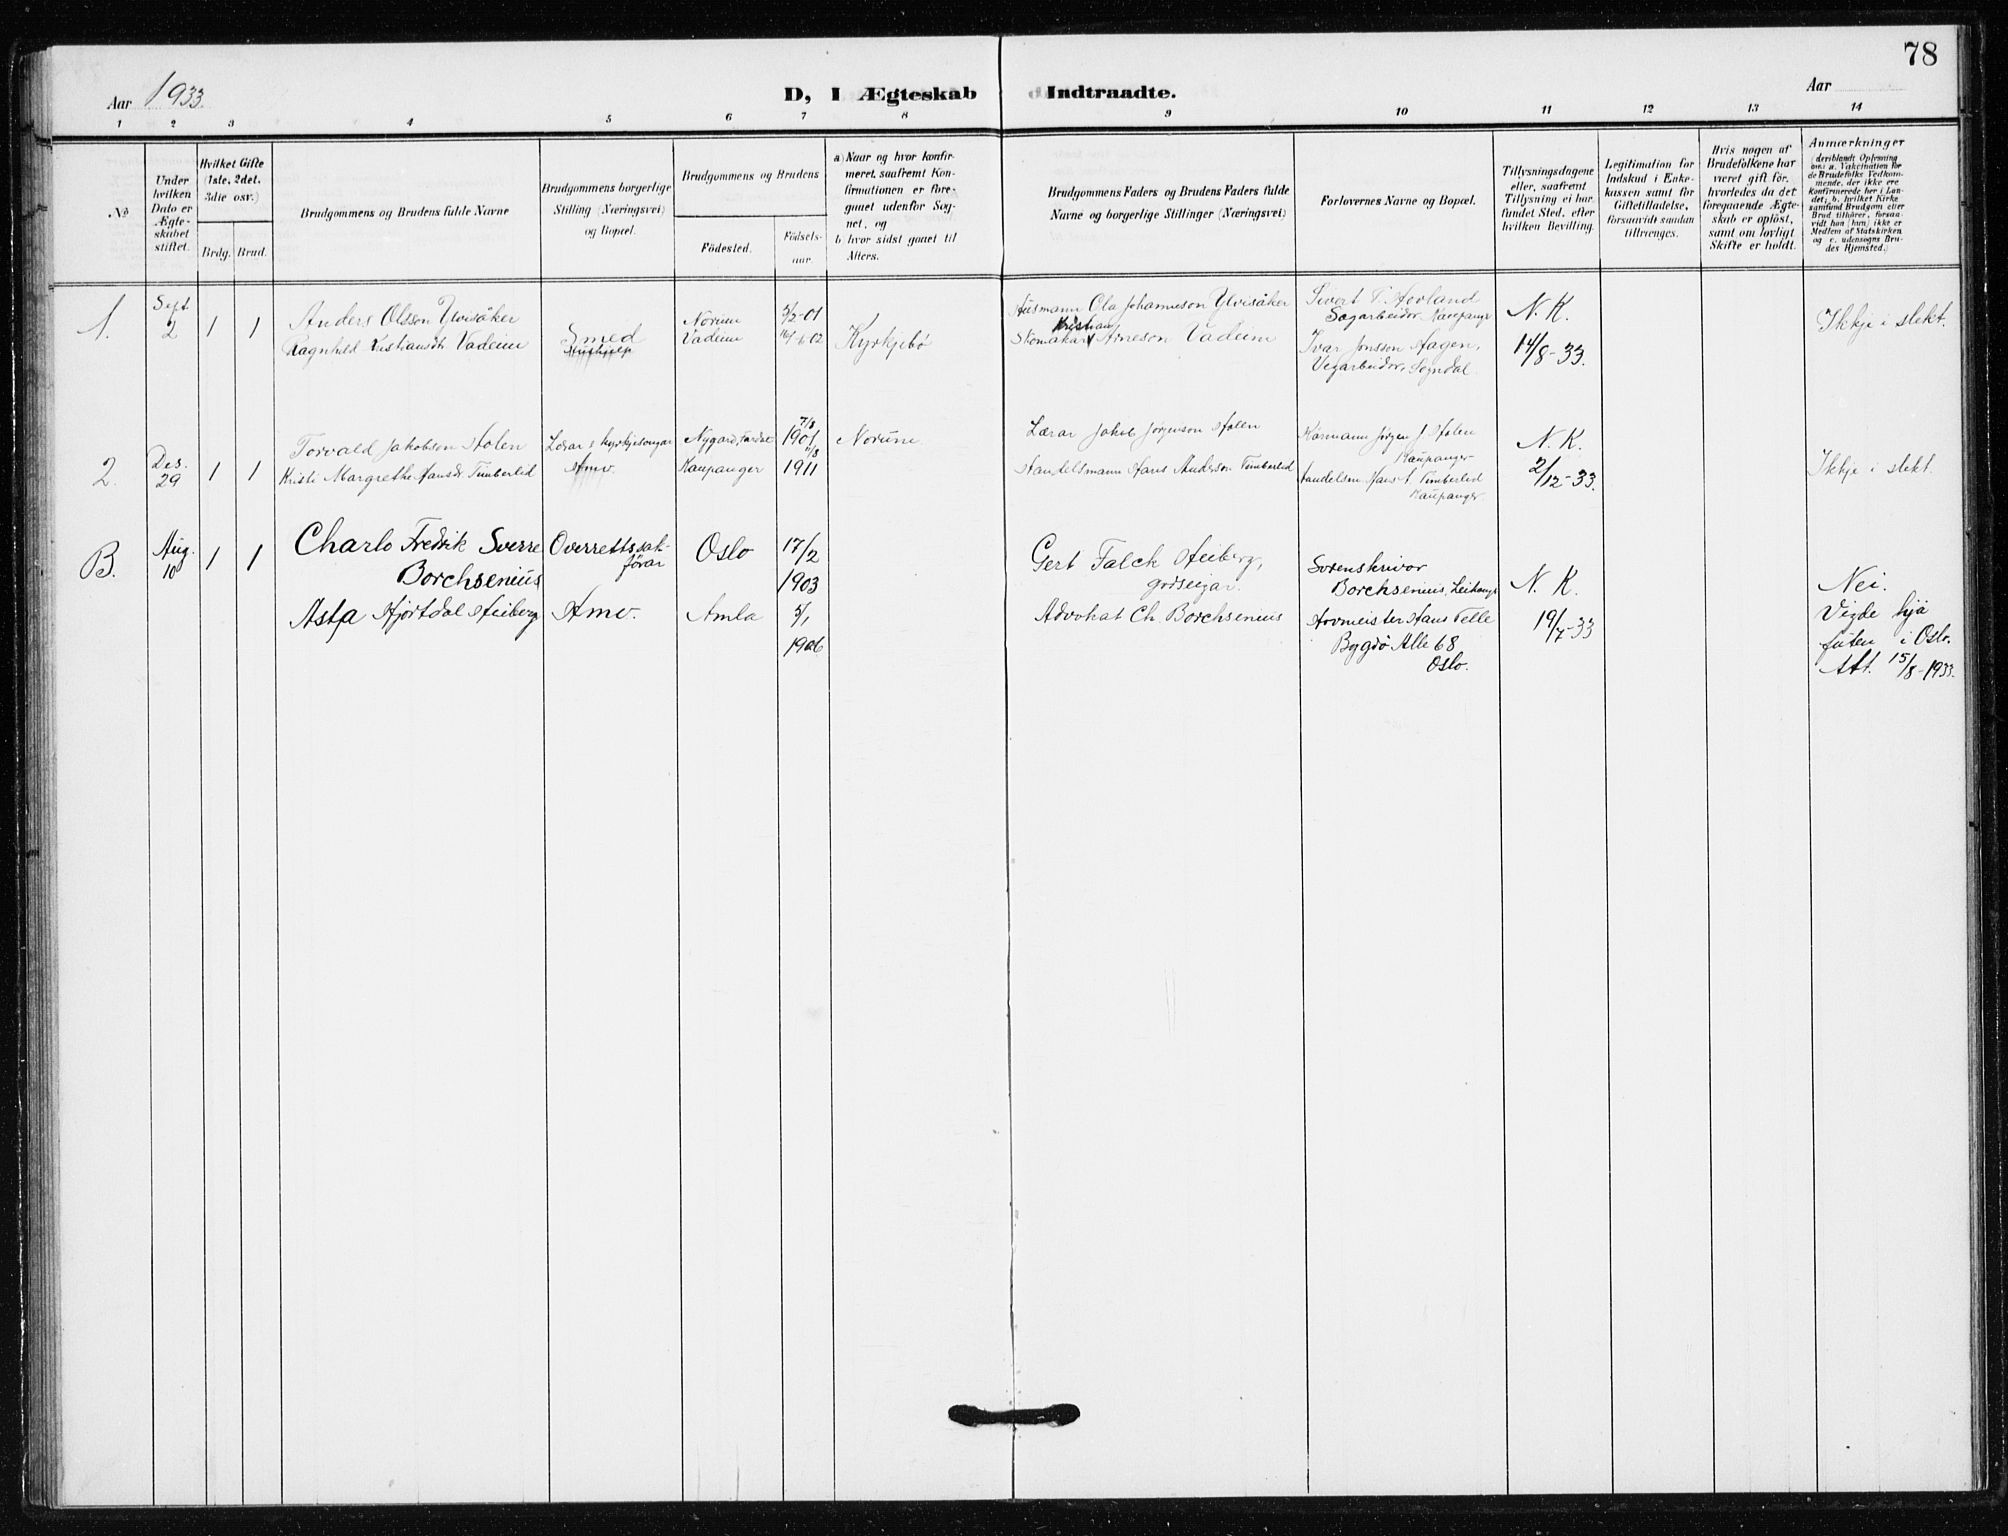 78
Aar 1933.
D, I Ægteskab Indtraadte.
Aar
1 2 3 4 5 6 7 8 9 10 11 12 13 14
No
Under hvilken Dato er Ægteskabet stiftet.
Hvilket Gifte (1ste, 2det, 3die osv.)
Brdg. Brud.
Brudgommens og Brudens fulde Navne
Brudgommens borgerlige Stilling (Næringsvei) og Bopæl.
Brudgommens og Brudens
Födested.
Födselsaar.
a) Naar og hvor konfirmeret, saafremt Konfirmationen er foregaaet udenfor Sognet, og
b) hvor sidst gaaet til Alters.
Brudgommens Faders og Brudens Faders fulde Navne og borgerlige Stillinger (Næringsvei)
Forlovernes Navne og Bopæl.
Tillysningsdagene eller, saafremt Tillysning ei har fundet Sted, efter hvilken Bevilling.
Legitimation for Indskud i Enkekassen samt for Giftetilladelse, forsaavidt saadan tiltrænges.
Hvis nogen af Brudefolkene har været gift för, hvorledes da det foregaaende Ægteskab er oplöst, samt om lovligt Skifte er holdt.
Anmerkninger
1. Sept 2 1 1
Anders Olsson Ylvisåker
Ragnhild Kristiansdtr Vadeim
Smed
Norum
Vadeim
5/2-01
Kyrkjebö
Husmann Ola Johanneson Ylvisåker
Kristian
Skomakar Arneson Vadeim
Sivert T. Hovland
Sagarbeidar, Kaupanger
Ivar Jonsson Hagen,
Vegarbeidar, Sogndal.
N. K.
14/8-33.
Ikkje i slekt.
2. Des. 29 1 1
Torvald Jakobson Stolen
Kristi Margrethe Hansdt. Timberlid
Lærar & kyrkjesongar
Nygard, Fardal
Kaupanger
7/8
1901
1911
Norum
Lærar Jakob Jörgenson Stolen
Handelsmann Hans Anderson Timberlid
Kårmann Jörgen J. Stolen
Kaupanger
Handelsm. Hans A. Timberlid
Kaupanger
N. K.
2/12-33.
Ikkje i slekt.
B. Aug. 10 1 1
Charlo Fredrik Sverre
Borchsenius
Asta Hjortdal Heiberg
Overrettssakförar
Oslo
Amla
17/2
1903
5/1
1906
Gert Falck Heiberg,
godseigar.
Advokat Ch. Borchsenius
Sorenskrivar
Borchsenius, Leikanger
Hovmeister Hans Telle
Bygdö Alle 68
Oslo.
N. K.
19/7-33
Nei.
Vigde hjå
futen i Oslo.
Att. 15/8-1933.